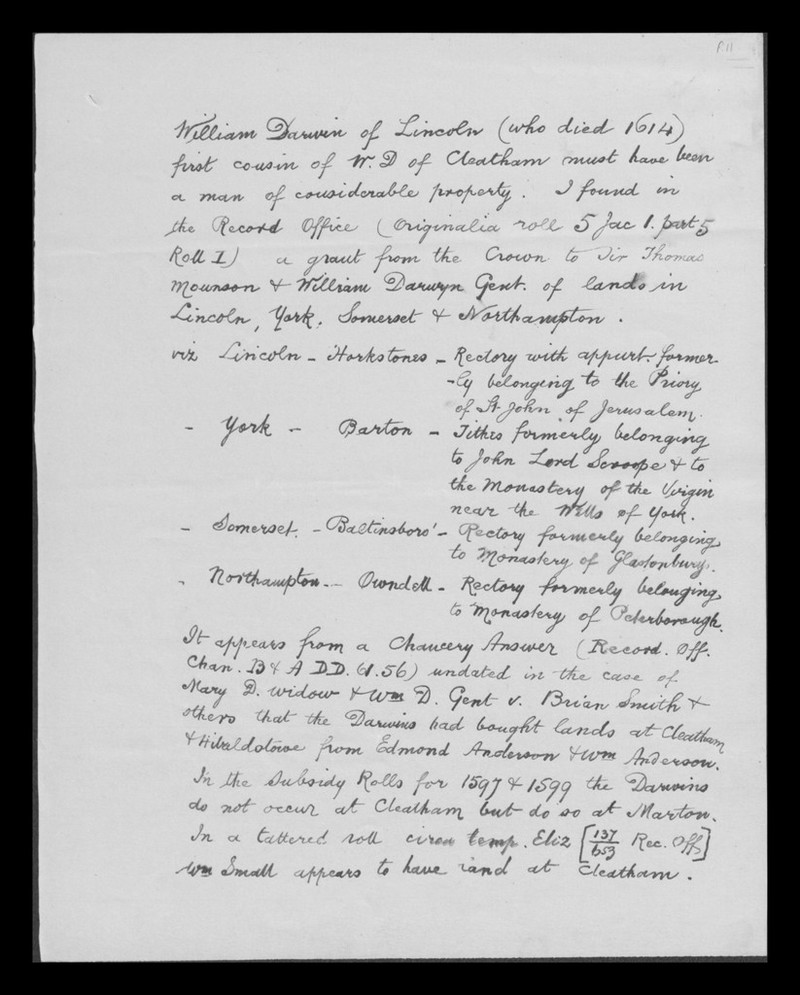 R.11
William Darwin of Lincoln (who died 1614)
first cousin of W. D of Cleatham must have been
a man of considerable property. I found in
the Record Office (Originalia roll 5 Jac 1. part 5
Roll I) a grant from the Crown to Sir Thomas
Mounson & William Darwyn Gent. of lands in
Lincoln, York, Somerset & Northampton.
viz Lincoln - Horkstones - Rectory with appurt. former-
-ly belonging to the Priory
of St John of Jerusalem.
- York - Barton - Tithes formerly belonging
to John Lord Scroope & to
the Monastery of the Virgin
near the Walls of York.
- Somerset. - Baltinsboro' - Rectory formerly belonging
to Monastery of Glastonbury.
- Northampton - Owndell - Rectory formerly belonging
to Monastery of Peterborough.
It appears from a Chancery Answer (Record. Off.
Chan. B & A DD. 61.56) undated in the case of
Mary D. widow & Wm D. Gent v. Brian Smith &
others that the Darwins had bought lands at Cleatham
& Hibaldstowe from Edmond Anderson & Wm Anderson.
In the Subsidy Rolls for 1597 & 1599 the Darwins
do not occur at Cleatham but do so at Marton.
In a tattered roll circa temp. Eliz [137/653 Rec. Off]
Wm Small appears to have land at Cleatham.